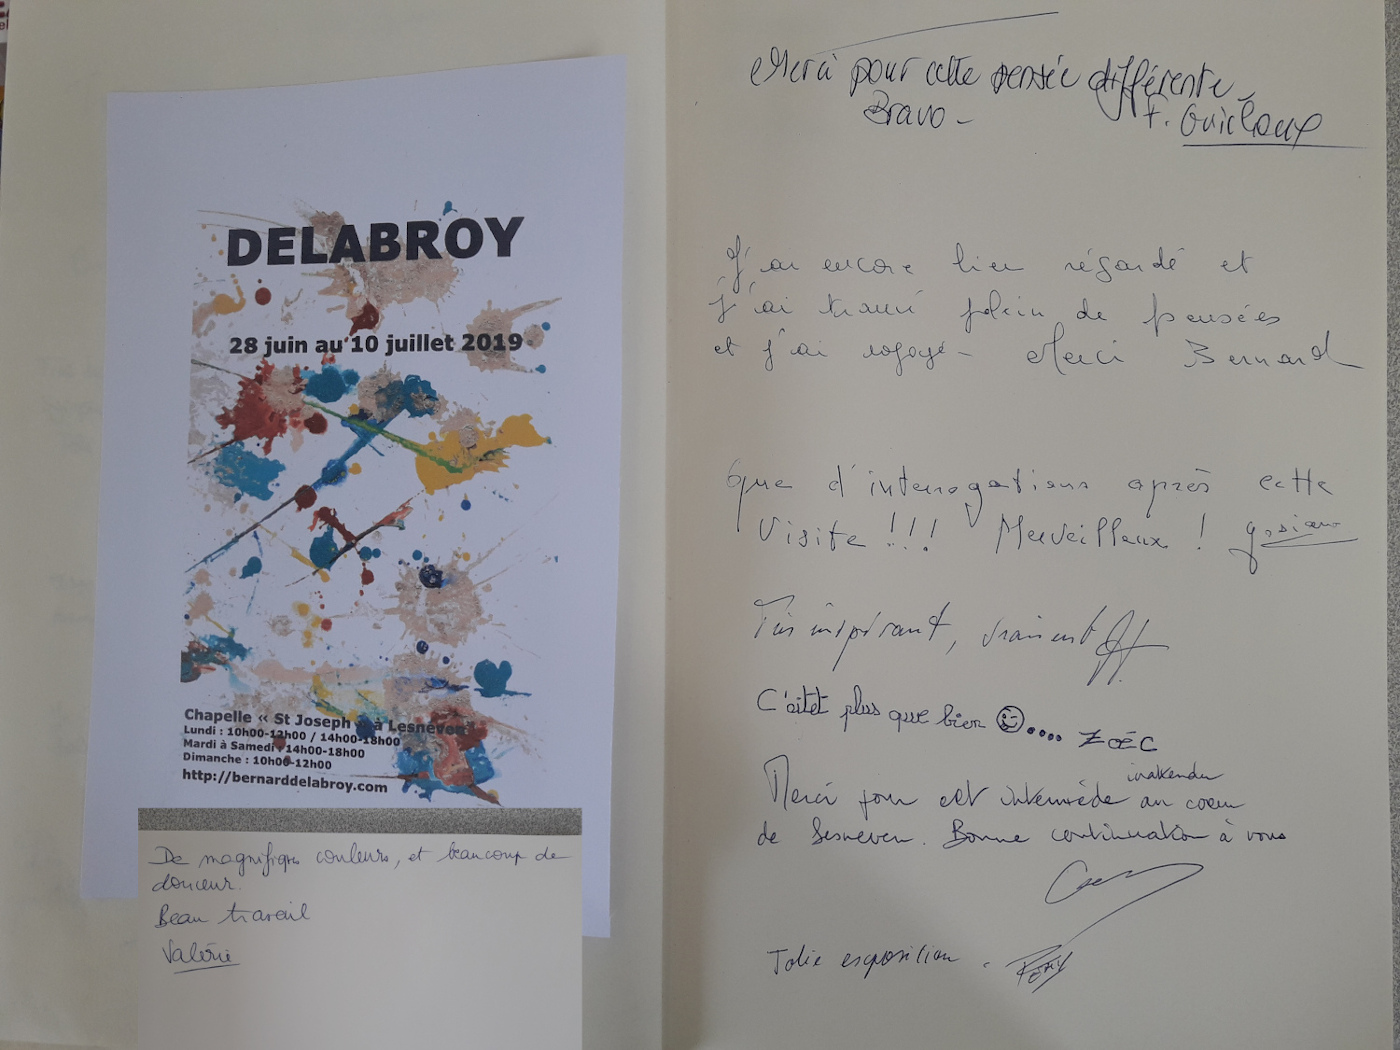 DELABROY
28 juin au 10 juillet 2019
Chapelle « St Joseph » à Lesneven
Lundi : 10h00-12h00 / 14h00-18h00
Mardi à Samedi : 14h00-18h00
Dimanche : 10h00-12h00
http://bernarddelabroy.com
De magnifiques couleurs, et beaucoup de
douceur.
Beau travail
Valérie
Merci pour cette pensée différente
Bravo - F.
J'ai encore bien régardé et
j'ai trouvé plein de pensées
et j'ai voyagé - Merci Bernard
Que d'interrogations après cette
Visite !!! Merveilleux !
Très inspirant, vraiment
C'aitet plus que bien .... Zoéc
inattendu
Merci pour cet intermède au coeur
de Lesneven. Bonne continuation à vous
Jolie exposition.